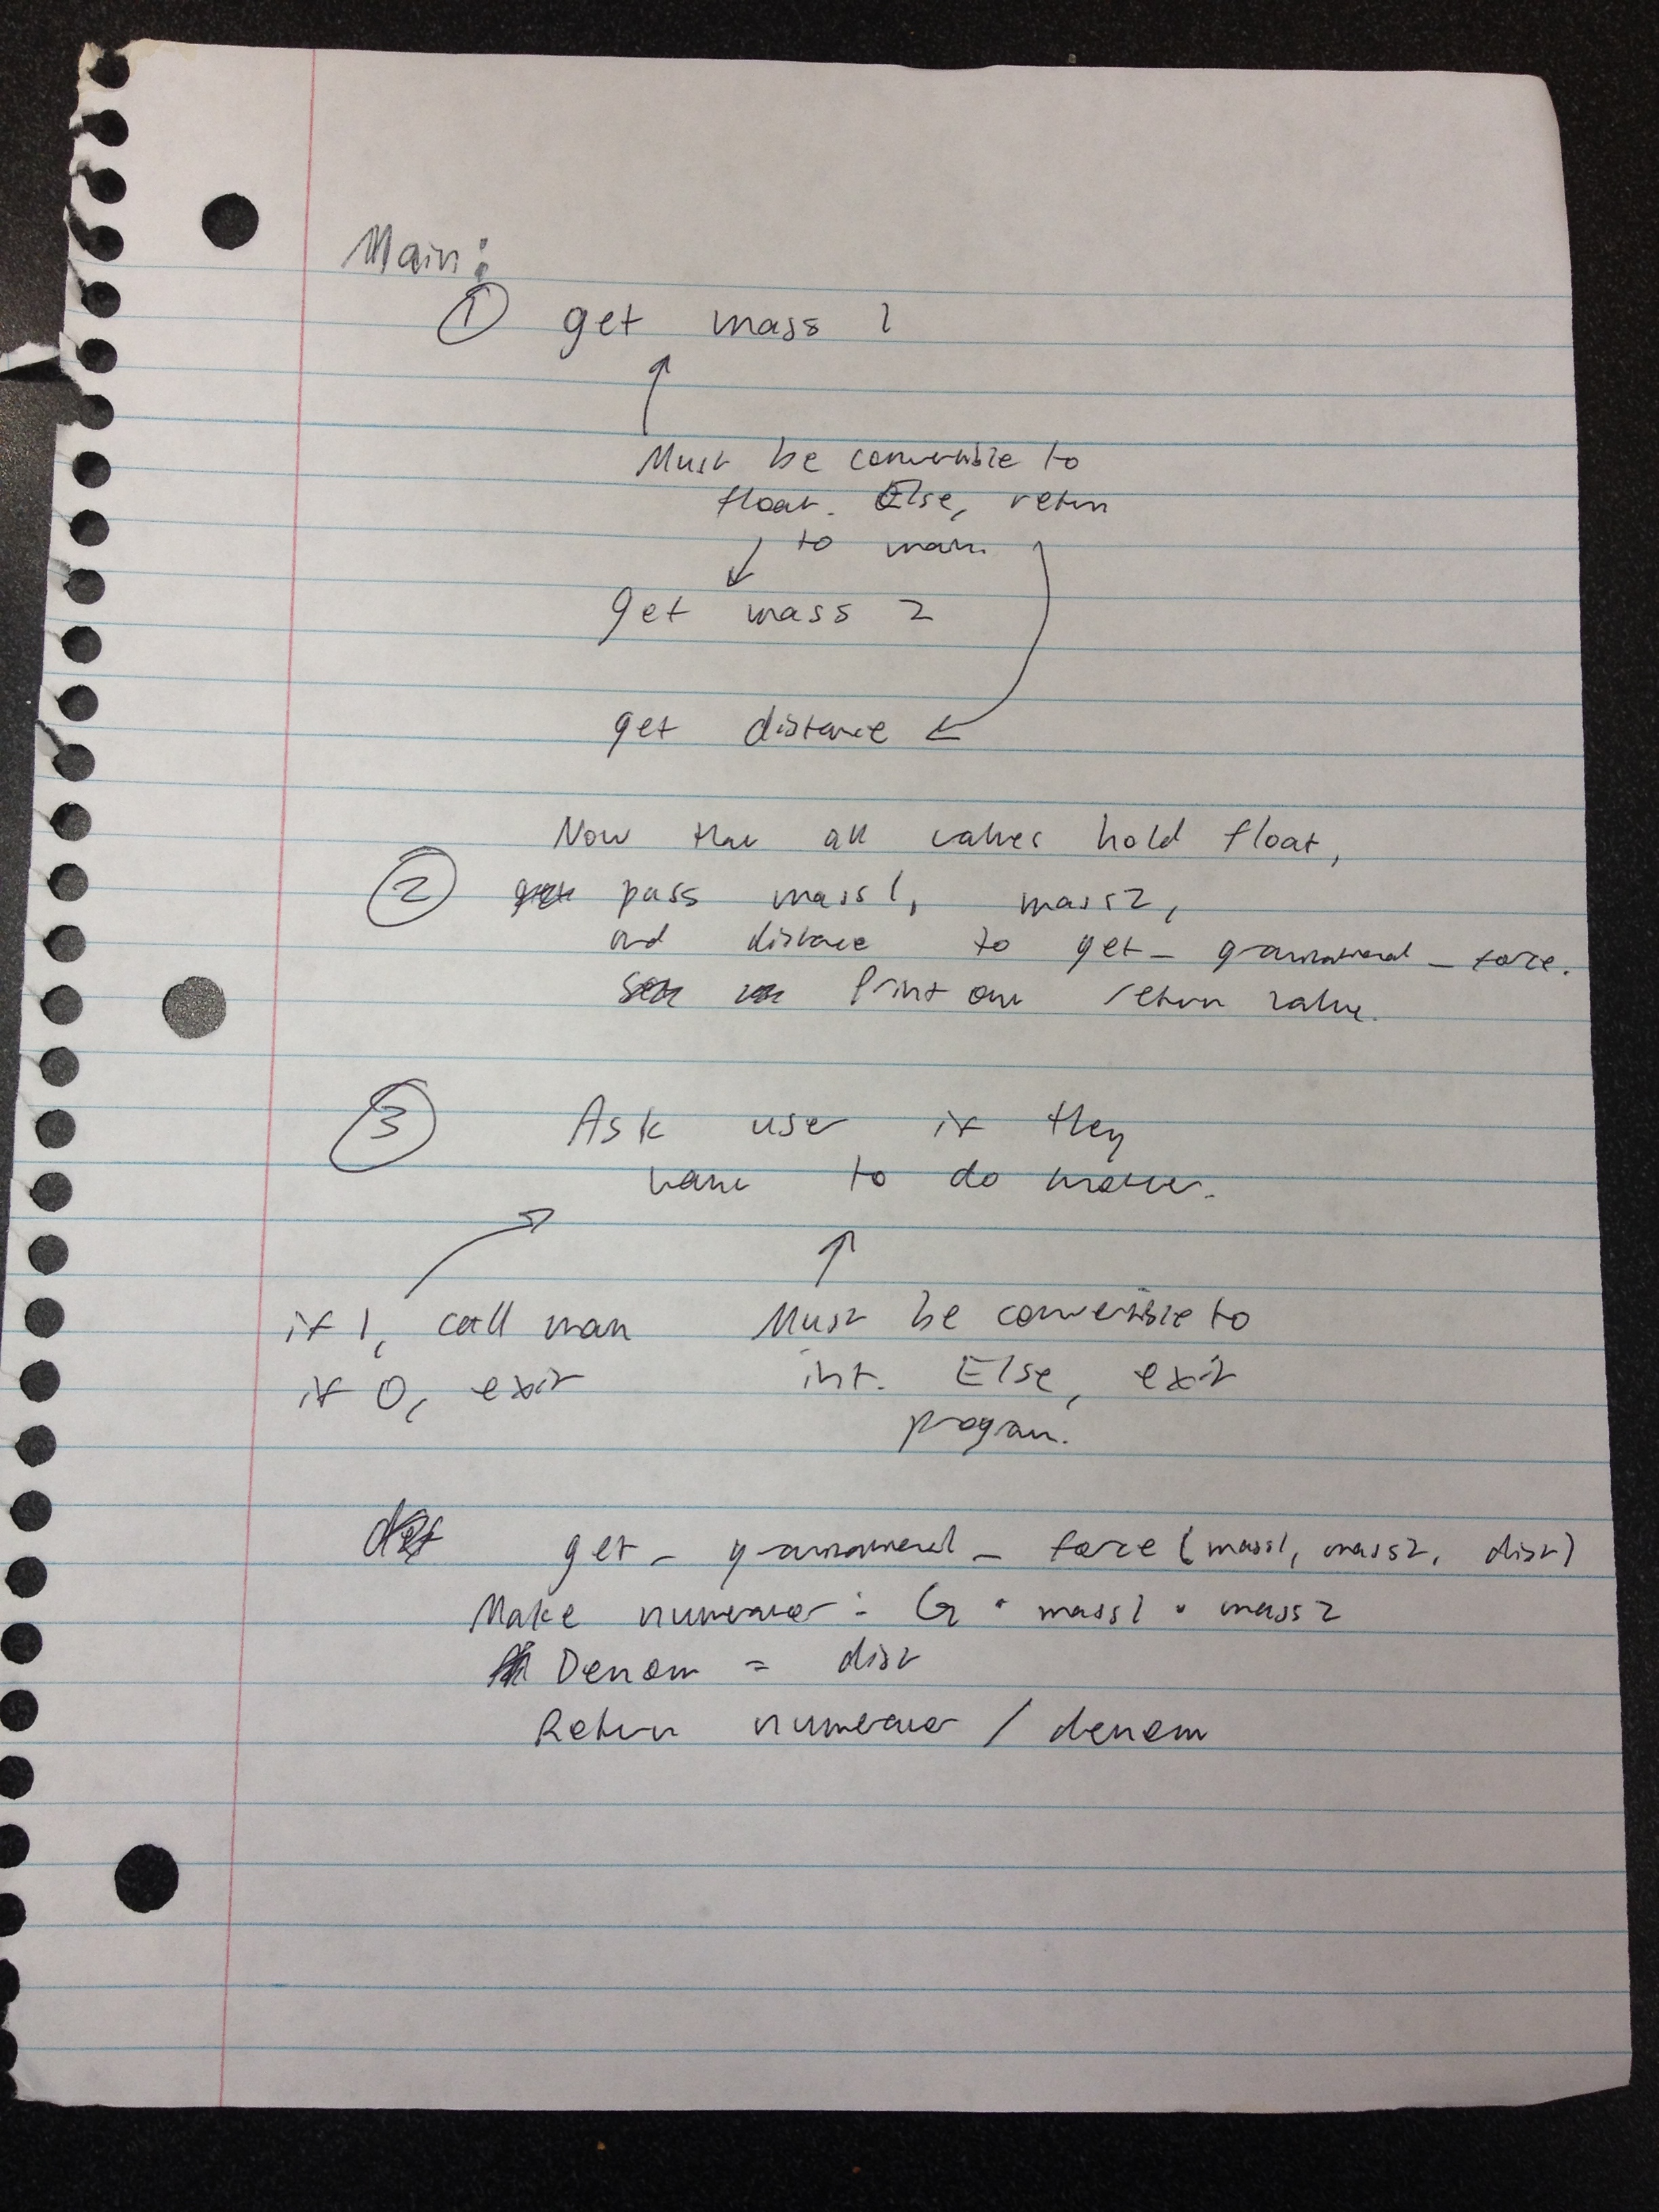 Main:
① get mass 1
Must be convertible to
float. Else, return
to main
get mass 2
get distance
Now that all values hold float,
② pass mass1, mass2,
and distance to get_gravitational_force.
Print out return value.
③ Ask user if they
want to do
if 1, call main
if 0, exit
Must be convertible to
int. Else, exit
program.
def get_gravitational_force(mass1, mass2, dist)
Make numerator: G • mass1 • mass2
Denom = dist
Return numerator / denom